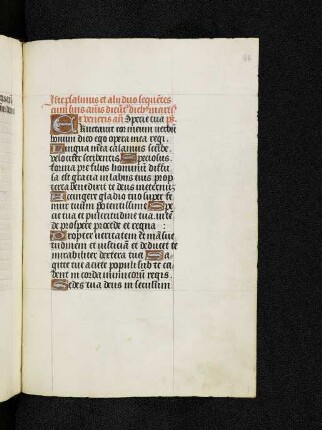 86
Iste psalmus et alii duo sequentes
cum suis ant dicunt dieb marti
et veneris an Specie tua ps
Eructavit cor meum verbum
bonum dico ego opera mea regi.
Lingua mea calamus scribe
velociter scribentis. Speciosus
forma pre filiis hominum diffu
sa est gratia in labiis tuis prop
terea benedixit te deus ineternum
Accingere gladio tuo super fe
mur tuum potentissime Spe
cie tua et pulcritudine tua. inten
de prospere procede et regna :
Propter veritatem et mansue
tudinem et iusticiam et deducet te
mirabiliter dextera tua Sa
gitte tue acute populi sub te ca
dent in corda inimicorum regis.
Sedes tua deus in seculum